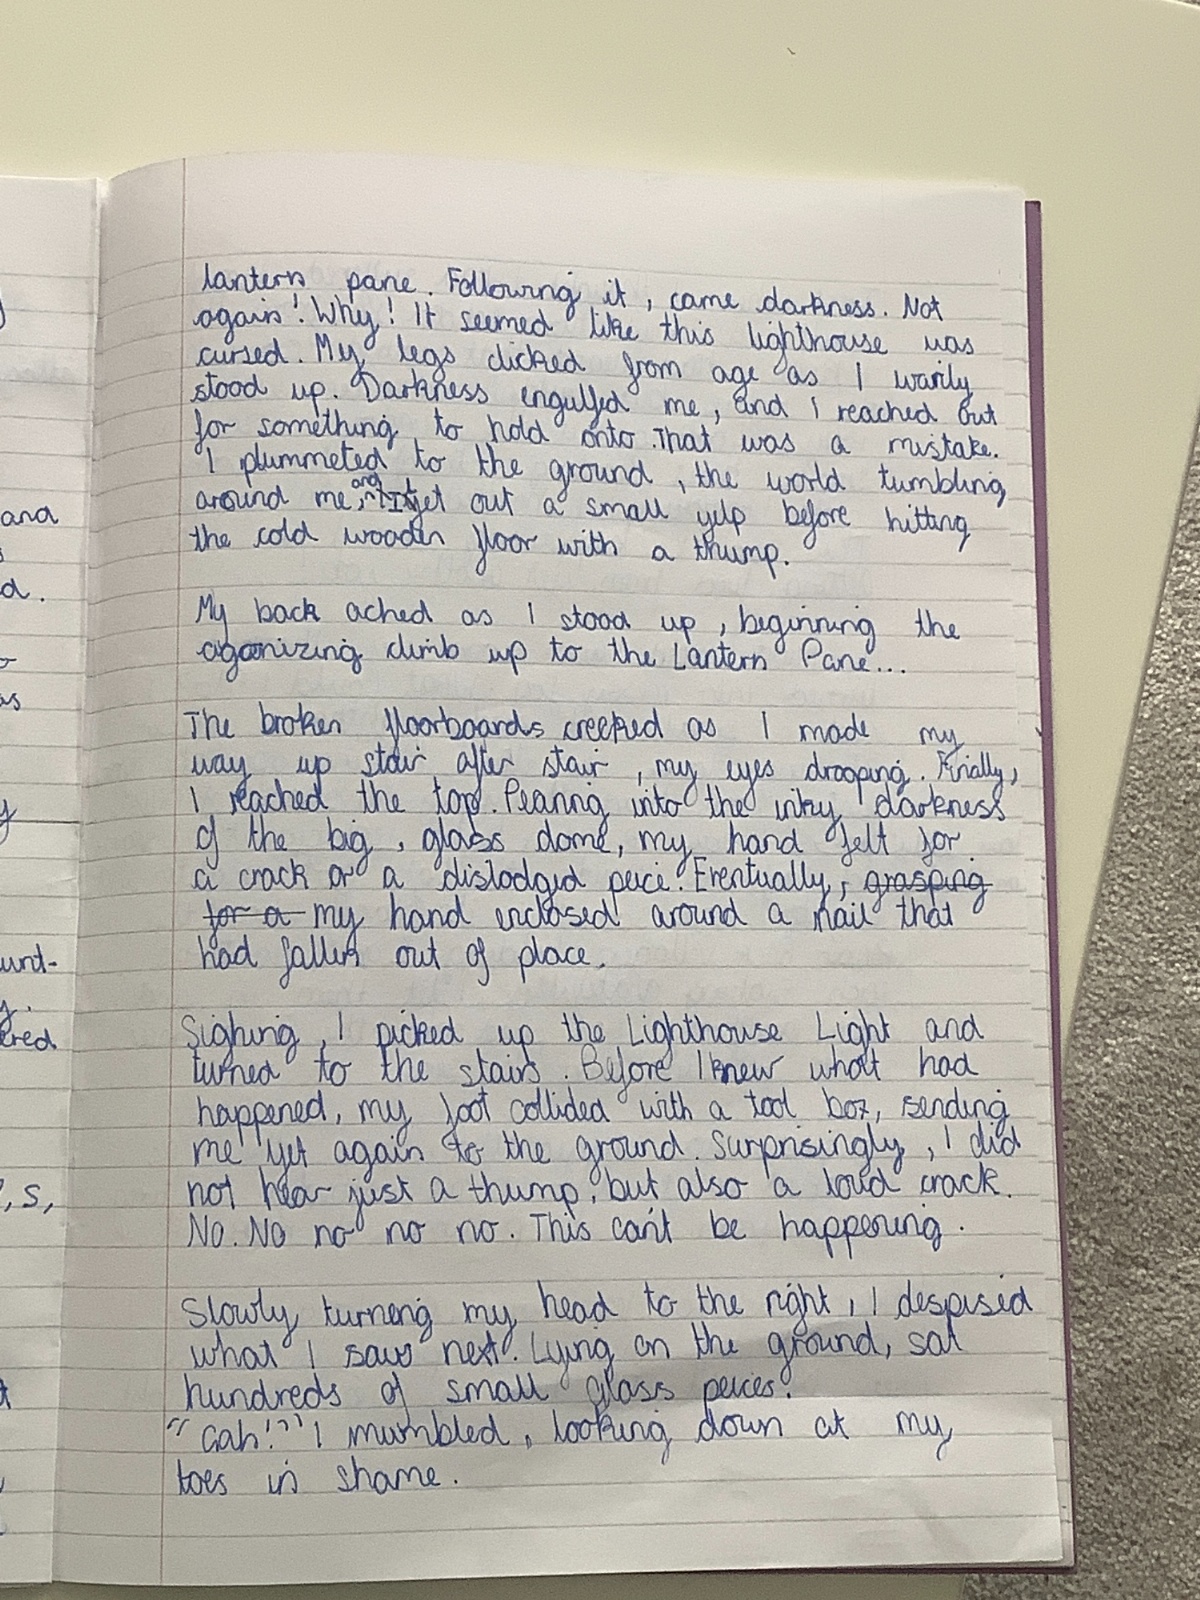 and
d.
as
y
unt-
ered
, S,
lantern pane. Following it, came darkness. Not
again! Why! It seemed like this lighthouse was
cursed. My legs clicked from age as I warily
stood up. Darkness engulfed me, and I reached out
for something to hold onto. That was a mistake.
I plummeted to the ground, the world tumbling
around me, and I let out a small yelp before hitting
the cold wooden floor with a thump.
My back ached as I stood up, beginning the
agonizing climb up to the Lantern Pane...
The broken floorboards creeked as I made my
way up stair after stair, my eyes drooping. Finally,
I reached the top. Pearing into the inky darkness
of the big, glass dome, my hand felt for
a crack or a dislodged peice. Eventually, grasping
for a my hand enclosed around a nail that
had fallen out of place.
Sighing, I picked up the Lighthouse Light and
turned to the stairs. Before I knew what had
happened, my foot collided with a tool box, sending
me yet again to the ground. Surprisingly, I did
not hear just a thump, but also a loud crack.
No. No no no no. This can't be happening.
Slowly turneng my head to the right, I despised
what I saw next. Lying on the ground, sat
hundreds of small glass peices.
"Gah!" I mumbled, looking down at my
toes in shame.